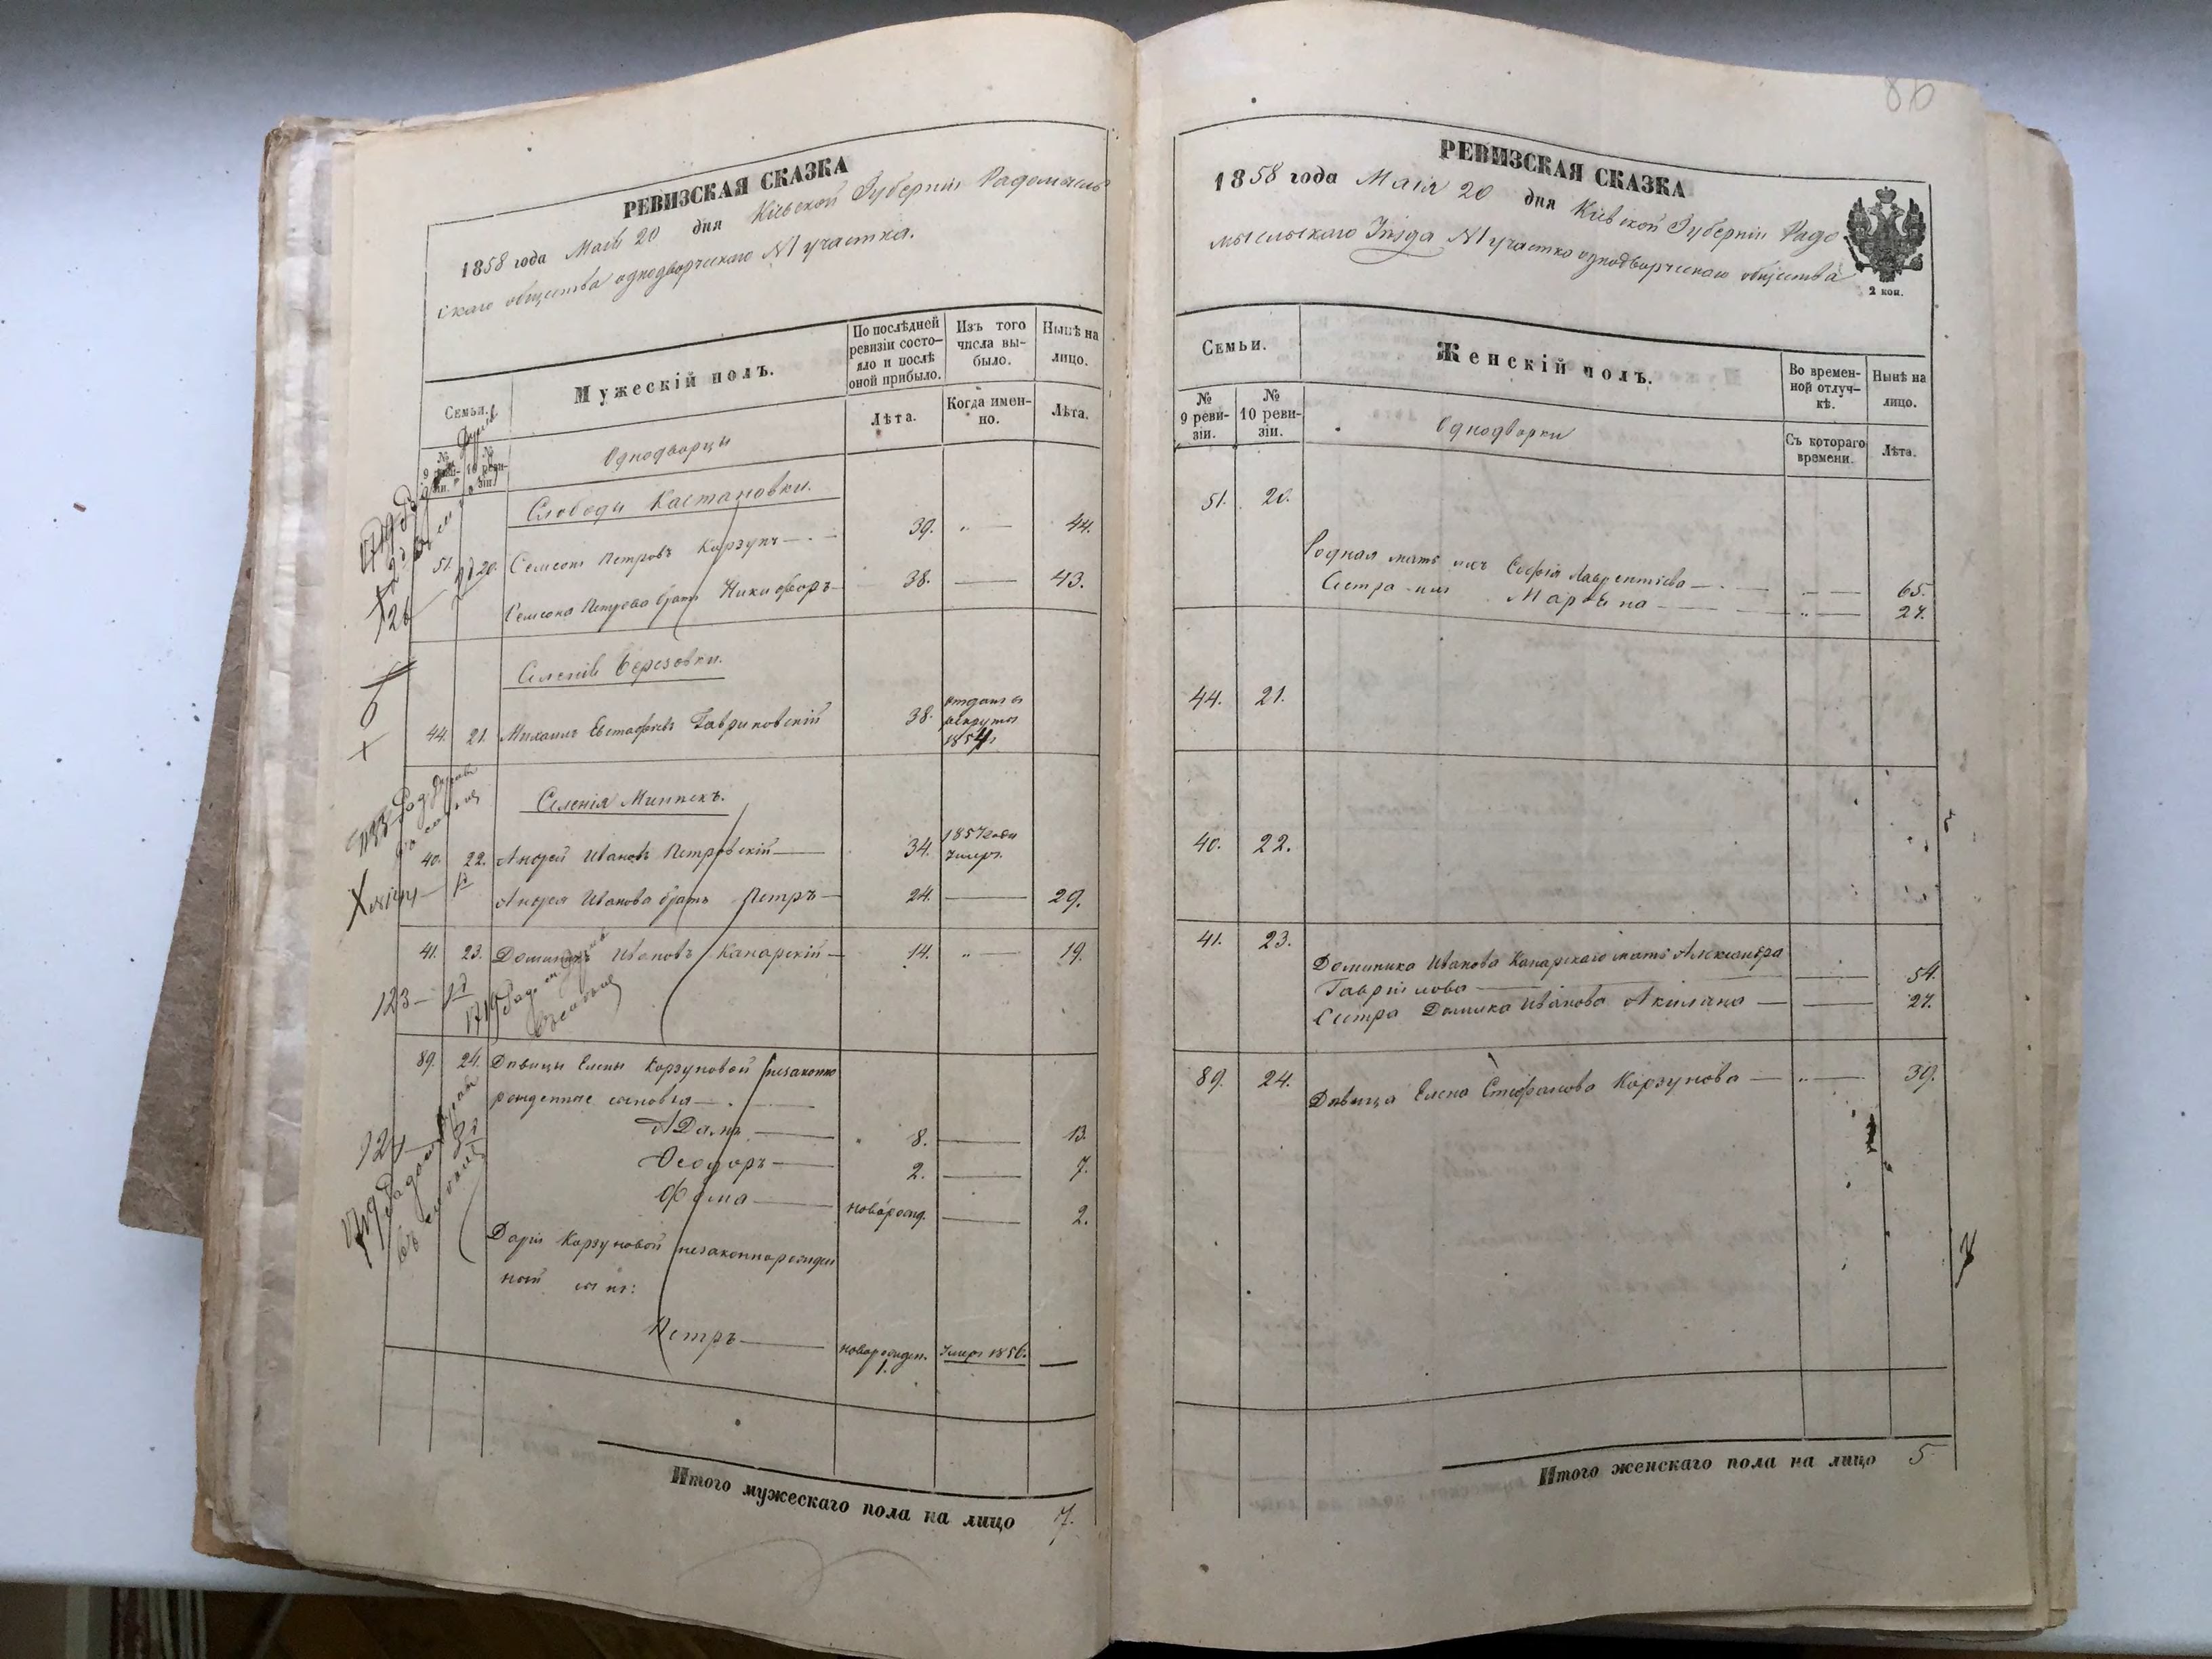 РЕВИЗСКАЯ СКАЗКА
1858 года Маія 20 дня Кіевской Губерніи Радомысль
скаго общества однодворческаго №1 участка.
Семьи.
Мужескій полъ.
По послѣдней ревизіи состояло и послѣ оной прибыло.
Изъ того числа выбыло.
Нынѣ на лицо.
№ 9 ревизіи.
№ 10 ревизіи.
Однодворцы
Лѣта.
Когда именно.
Лѣта.
Слободы Кастановки.
51. 20. Семеонъ Петровъ Корзунъ 39. " 44.
Семеона Петрова братъ Никифоръ 38. 43.
126
Селенія Березовки.
44. 21. Михаилъ Евстафіевъ Гавриковскій 38. отданъ в рекруты 1854
Селенія Минпекъ.
40. 22. Андрей Ивановъ Петровскій 34. 1857 года Умеръ.
Андрея Иванова братъ Петръ 24. 29.
41. 23. Доминикъ Ивановъ Канарскій 14. " 19.
123
89. 24. Дѣвицы Елены Корзуновой незаконно
рожденные сыновья
Адамъ 8. 13.
Ѳеодоръ 2. 7.
Фома новорожд. 2.
124
Дарьи Корзуновой незаконнорожден
ной сынъ:
Петръ новорожден. Умеръ 1856.
1.
Итого мужескаго пола на лицо 7.
86
РЕВИЗСКАЯ СКАЗКА
1858 года Маія 20 дня Кіевской Губерніи Радо
мысльскаго Уѣзда №1 участка однодворческаго общества
2 коп.
Семьи.
Женскій полъ.
Во временной отлучкѣ.
Нынѣ на лицо.
№ 9 ревизіи.
№ 10 ревизіи.
Однодворки
Съ котораго времени.
Лѣта.
51. 20.
Родная мать ихъ Софія Лаврентіева 65.
Сестра ихъ Марѳина " 27.
44. 21.
40. 22.
41. 23.
Доминика Иванова Канарскаго мать Александра
Гаврилова 54.
Сестра Домика Иванова Акилина 27.
89. 24. Дѣвица Елена Стефанова Корзунова " 39.
Итого женскаго пола на лицо 5